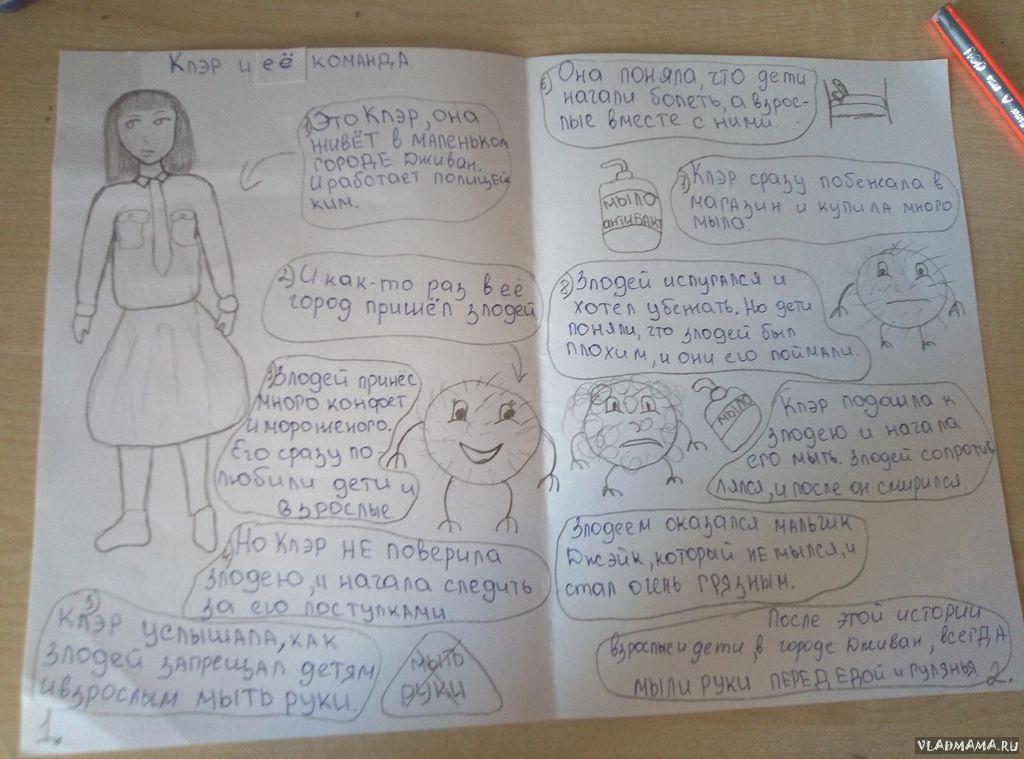 Клэр и её команда.
1) Это Клэр, она
живёт в маленьком
городе Дживан.
И работает полицей
ким.
2) И как-то раз в её
город пришёл злодей
3) Злодей принёс
много конфет
и мороженого.
Его сразу по-
любили дети и
взрослые
4) Но Клэр не поверила
злодею, и начала следить
за его поступками.
5)
Клэр услышала, как
злодей запрещал детям
и взрослым мыть руки.
мыть
руки
1.
6) Она поняла, что дети
начали болеть, а взрос-
лые вместе с ними.
7) Клэр сразу побежала в
магазин и купила много
мыла.
мыло
антибакт
8) Злодей испугался и
хотел убежать. Но дети
поняли, что злодей был
плохим, и они его поймали.
мыло
Клэр подошла к
злодею и начала
его мыть. Злодей сопротив
лялся, и после он смирился.
Злодеем оказался мальчик
Джэйк, который не мылся, и
стал очень грязным.
После этой истории
взрослые и дети, в городе Дживан, всегда
мыли руки перед едой и гулянья.
2.
VLADMAMA.RU